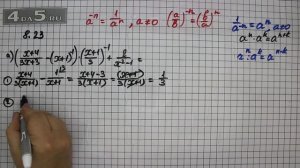 4DA5.RU
8.23
a^{-n} = \frac{1}{a^n}, a≠0 (\frac{a}{b})^{-n} = (\frac{b}{a})^n
\frac{1}{a^{-n}} = a^n
a^n · a^k = a^{n+k}
a^n : a^k = a^{n-k}
(\frac{x+4}{3x+3} - (x+1)^{-1}) · (\frac{x+1}{3})^{-1} +
① \frac{x+4}{3(x+1)} - \frac{1}{x+1} = \frac{x+4-3}{3(x+1)} = \frac{(x+1)}{3(x+1)} = \frac{1}{3}
②